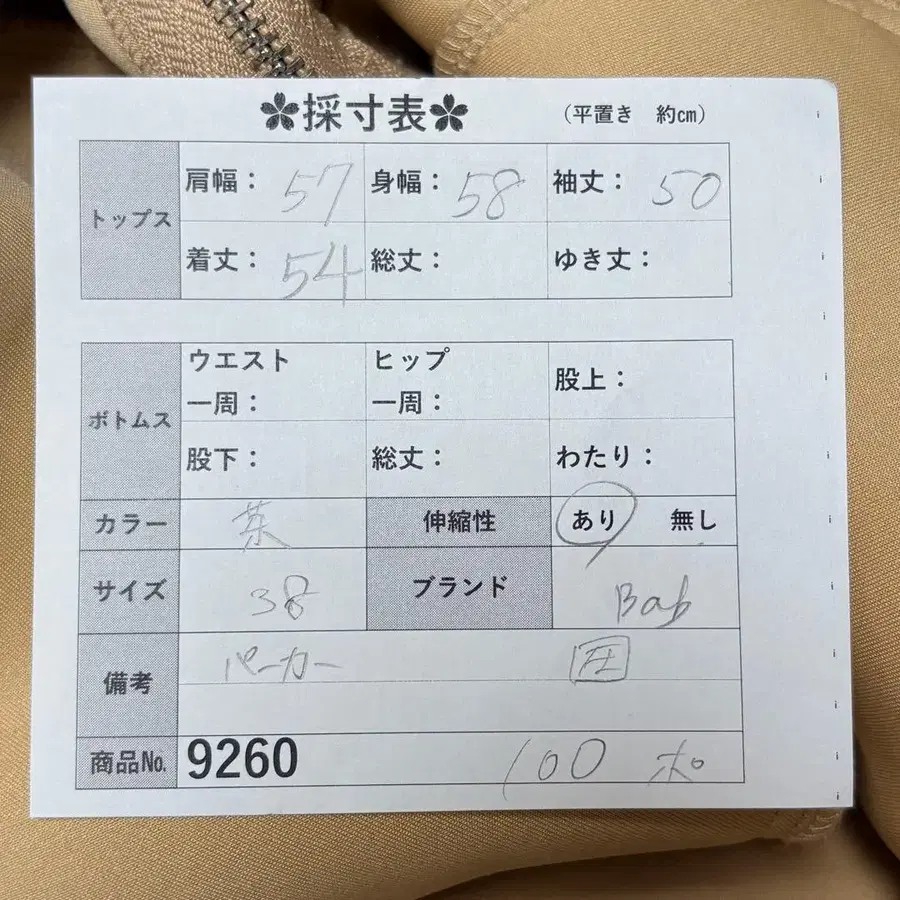 ✿採寸表✿ (平置き 約cm)
トップス 肩幅: 57 身幅: 58 袖丈: 50
着丈: 54 総丈: ゆき丈:
ボトムス ウエスト一周: ヒップ一周: 股上:
股下: 総丈: わたり:
カラー 茶 伸縮性 あり 無し
サイズ 38 ブランド Bab
備考 パーカー 圧
商品No. 9260 100 ポ